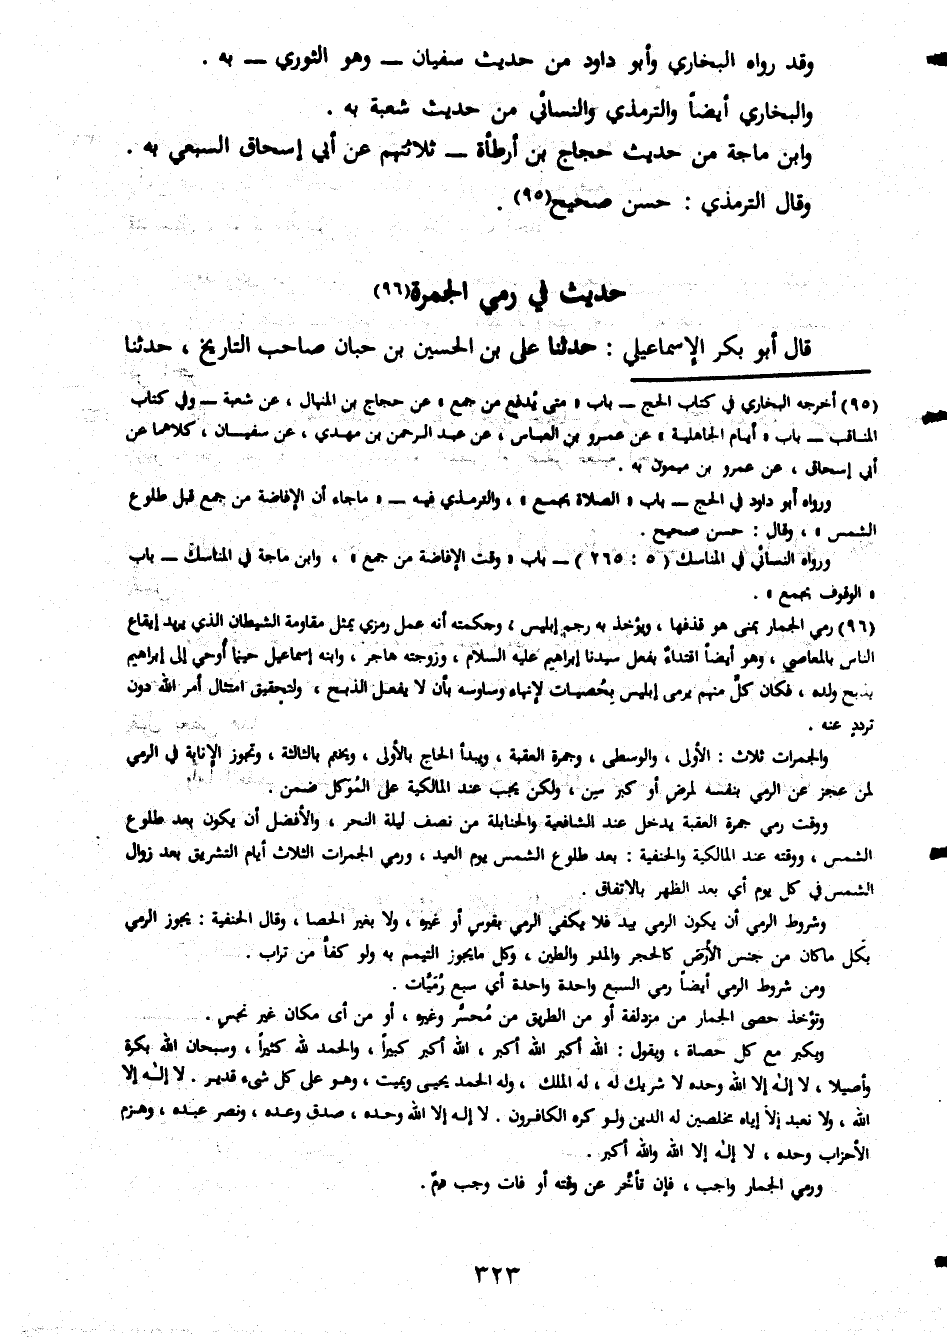 وقد رواه البخاري وأبو داود من حديث سفيان ــ وهو الثوري ــ به .
والبخاري أيضاً والترمذي والنسائي من حديث شعبة به .
وابن ماجة من حديث حجاج بن أرطأة ــ ثلاثتهم عن أبي إسحاق السبعي به .
وقال الترمذي : حسن صحيح(٩٥) .
حديث في رمي الجمرة(٩٦)
قال أبو بكر الإسماعيلي : حدثنا علي بن الحسين بن حبان صاحب التاريخ ، حدثنا
(٩٥) أخرجه البخاري في كتاب الحج ــ باب « متى يُدفع من جمع » عن حجاج بن المنهال ، عن شعبة ــ وفي كتاب
المناقب ــ باب « أيام الجاهلية » عن عمرو بن العباس ، عن عبد الرحمن بن مهدي ، عن سفيان ، كلاهما عن
أبي إسحاق ، عن عمرو بن ميمون به .
ورواه أبو داود في الحج ــ باب « الصلاة بجمع » ، والترمذي فيه ــ « ماجاء أن الإفاضة من جمع قبل طلوع
الشمس » ، وقال : حسن صحيح .
ورواه النسائي في المناسك ( ٥ : ٢٦٥ ) ــ باب « وقت الإفاضة من جمع » ، وابن ماجة في المناسك ــ باب
« الوقوف بجمع » .
(٩٦) رمي الجمار بمنى هو قذفها ، ويؤخذ به رجم إبليس ، وحكمته أنه عمل رمزي يمثل مقاومة الشيطان الذي يريد إيقاع
الناس بالمعاصي ، وهو أيضاً اقتداءً بفعل سيدنا إبراهيم عليه السلام ، وزوجته هاجر ، وابنه إسماعيل حينما أُوحي إلى إبراهيم
بذبح ولده ، فكان كلٌّ منهم يرمي إبليس بِحُصيات لإنهاء وساوسه بأن لا يفعل الذبح ، ولتحقيق امتثال أمر الله دون
تردد عنه .
والجمرات ثلاث : الأولى ، والوسطى ، وجمرة العقبة ، ويبدأ الحاج بالأولى ، ويختم بالثالثة ، وتجوز الإنابة في الرمي
لمن عجز عن الرمي بنفسه لمرضٍ أو كبر سن ، ولكن يجب عند المالكية على المُوكل ضمن .
ووقت رمي جمرة العقبة يدخل عند الشافعية والحنابلة من نصف ليلة النحر ، والأفضل أن يكون بعد طلوع
الشمس ، ووقته عند المالكية والحنفية : بعد طلوع الشمس يوم العيد ، ورمي الجمرات الثلاث أيام التشريق بعد زوال
الشمس في كل يوم أي بعد الظهر بالاتفاق .
وشروط الرمي أن يكون الرمي بيد فلا يكفي الرمي بقوس أو غيره ، ولا بغير الحصا ، وقال الحنفية : يجوز الرمي
بكل ماكان من جنس الأرض كالحجر والمدر والطين ، وكل مايجوز التيمم به ولو كفاً من تراب .
ومن شروط الرمي أيضاً رمي السبع واحدة واحدة أي سبع رُمَيَّات .
وتؤخذ حصى الجمار من مزدلفة أو من الطريق من مُحسِّر وغيره ، أو من أى مكان غير نجس .
ويكبر مع كل حصاة ، ويقول : الله أكبر الله أكبر ، الله أكبر كبيراً ، والحمد لله كثيراً ، وسبحان الله بكرة
وأصيلا ، لا إله إلا الله وحده لا شريك له ، له الملك ، وله الحمد يحيى ويميت ، وهو على كل شيء قدير . لا إله إلا
الله ، ولا نعبد إلا إياه مخلصين له الدين ولو كره الكافرون . لا إله إلا الله وحده ، صدق وعده ، ونصر عبده ، وهزم
الأحزاب وحده ، لا إله إلا الله والله أكبر .
ورمي الجمار واجب ، فإن تأخر عن وقته أو فات وجب دمٌ .
٣٢٣